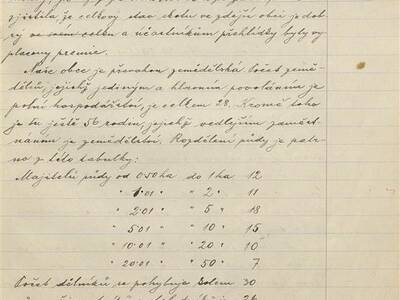 zjistila, že celkový stav skotu ve zdejší obci je dob-
rý ve svém celku a účastníkům přehlídky byly vy-
placeny premie.
Naše obec je převahou zemědělská. Počet země-
dělců, jejichž jediným a hlavním povoláním je
polní hospodářství, je celkem 28. Kromě toho
je tu ještě 56 rodin, jejichž vedlejším zaměst-
náním je zemědělství. Rozdělení půdy je patr-
no z této tabulky:
Majitelů půdy od 0·50 ha do 1 ha 12
" 1·01 " " 2 " 11
" 2·01 " " 5 " 18
" 5·01 " " 10 " 15
" 10·01 " " 20 " 10
" 20·01 " " 50 " 7
Počet dělníků se pohybuje kolem 30